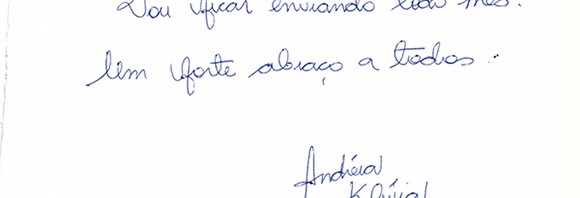 Vou ficar enviando todo mês.
Um forte abraço a todos.
Andréia